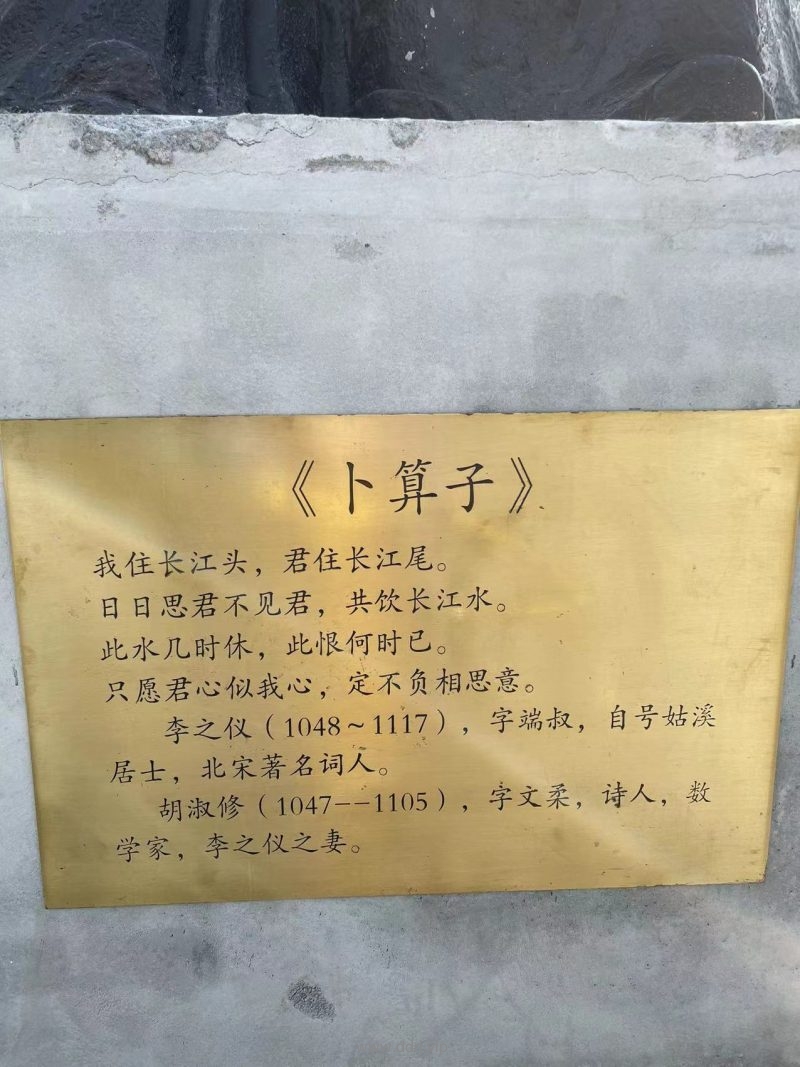 《卜算子》
我住长江头，君住长江尾。
日日思君不见君，共饮长江水。
此水几时休，此恨何时已。
只愿君心似我心，定不负相思意。
李之仪（1048～1117），字端叔，自号姑溪
居士，北宋著名词人。
胡淑修（1047--1105），字文柔，诗人，数
学家，李之仪之妻。